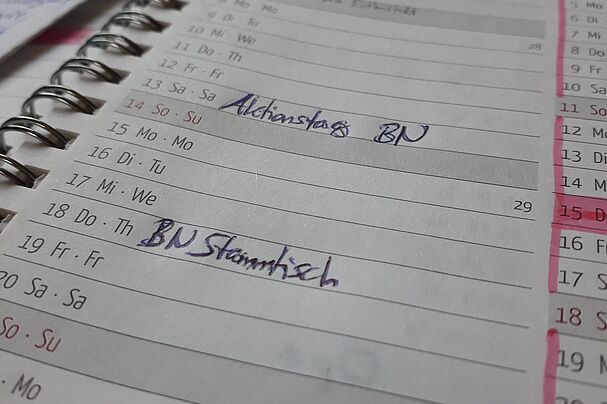 8 Mo · Mo
9 Di · Tu
10 Mi · We
28
11 Do · Th
12 Fr · Fr
13 Sa · Sa Aktionstag BN
14 So · Su
15 Mo · Mo
16 Di · Tu
17 Mi · We
29
18 Do · Th BN Stammtisch
19 Fr · Fr
20 Sa · Sa
So · Su
· Mo
5 Mo
6 Di
7 Mi
8 Do
9 Fr
10 Sa
11 So
12 Mo
13 Di
14 M
15 D
16 F
17 S
18 S
19 M